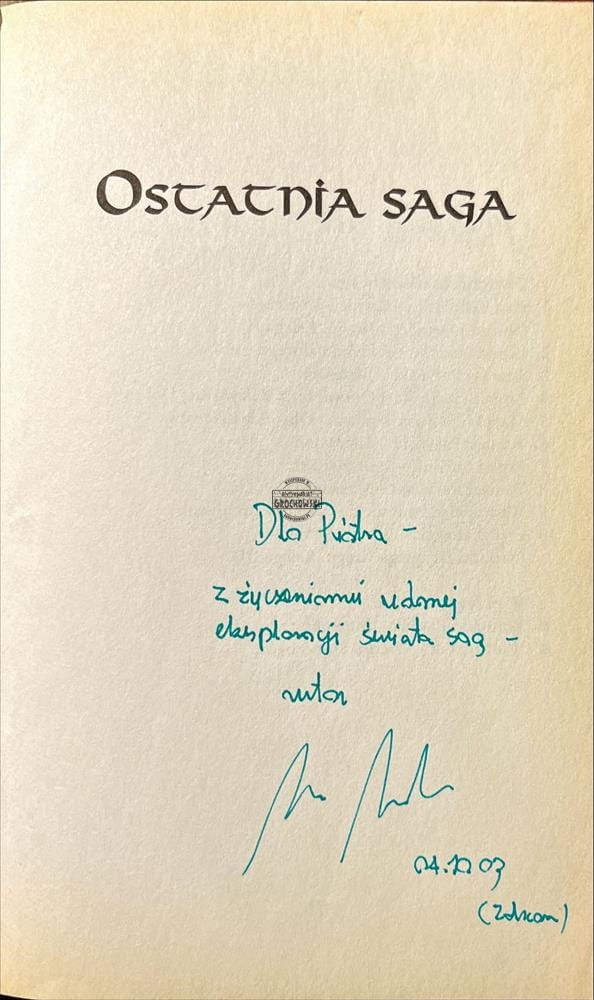 Ostatnia saga
GROCHOWSKI
Dla Piotra –
z życzeniami udanej
eksploracji świata sag –
autor
04.10 03